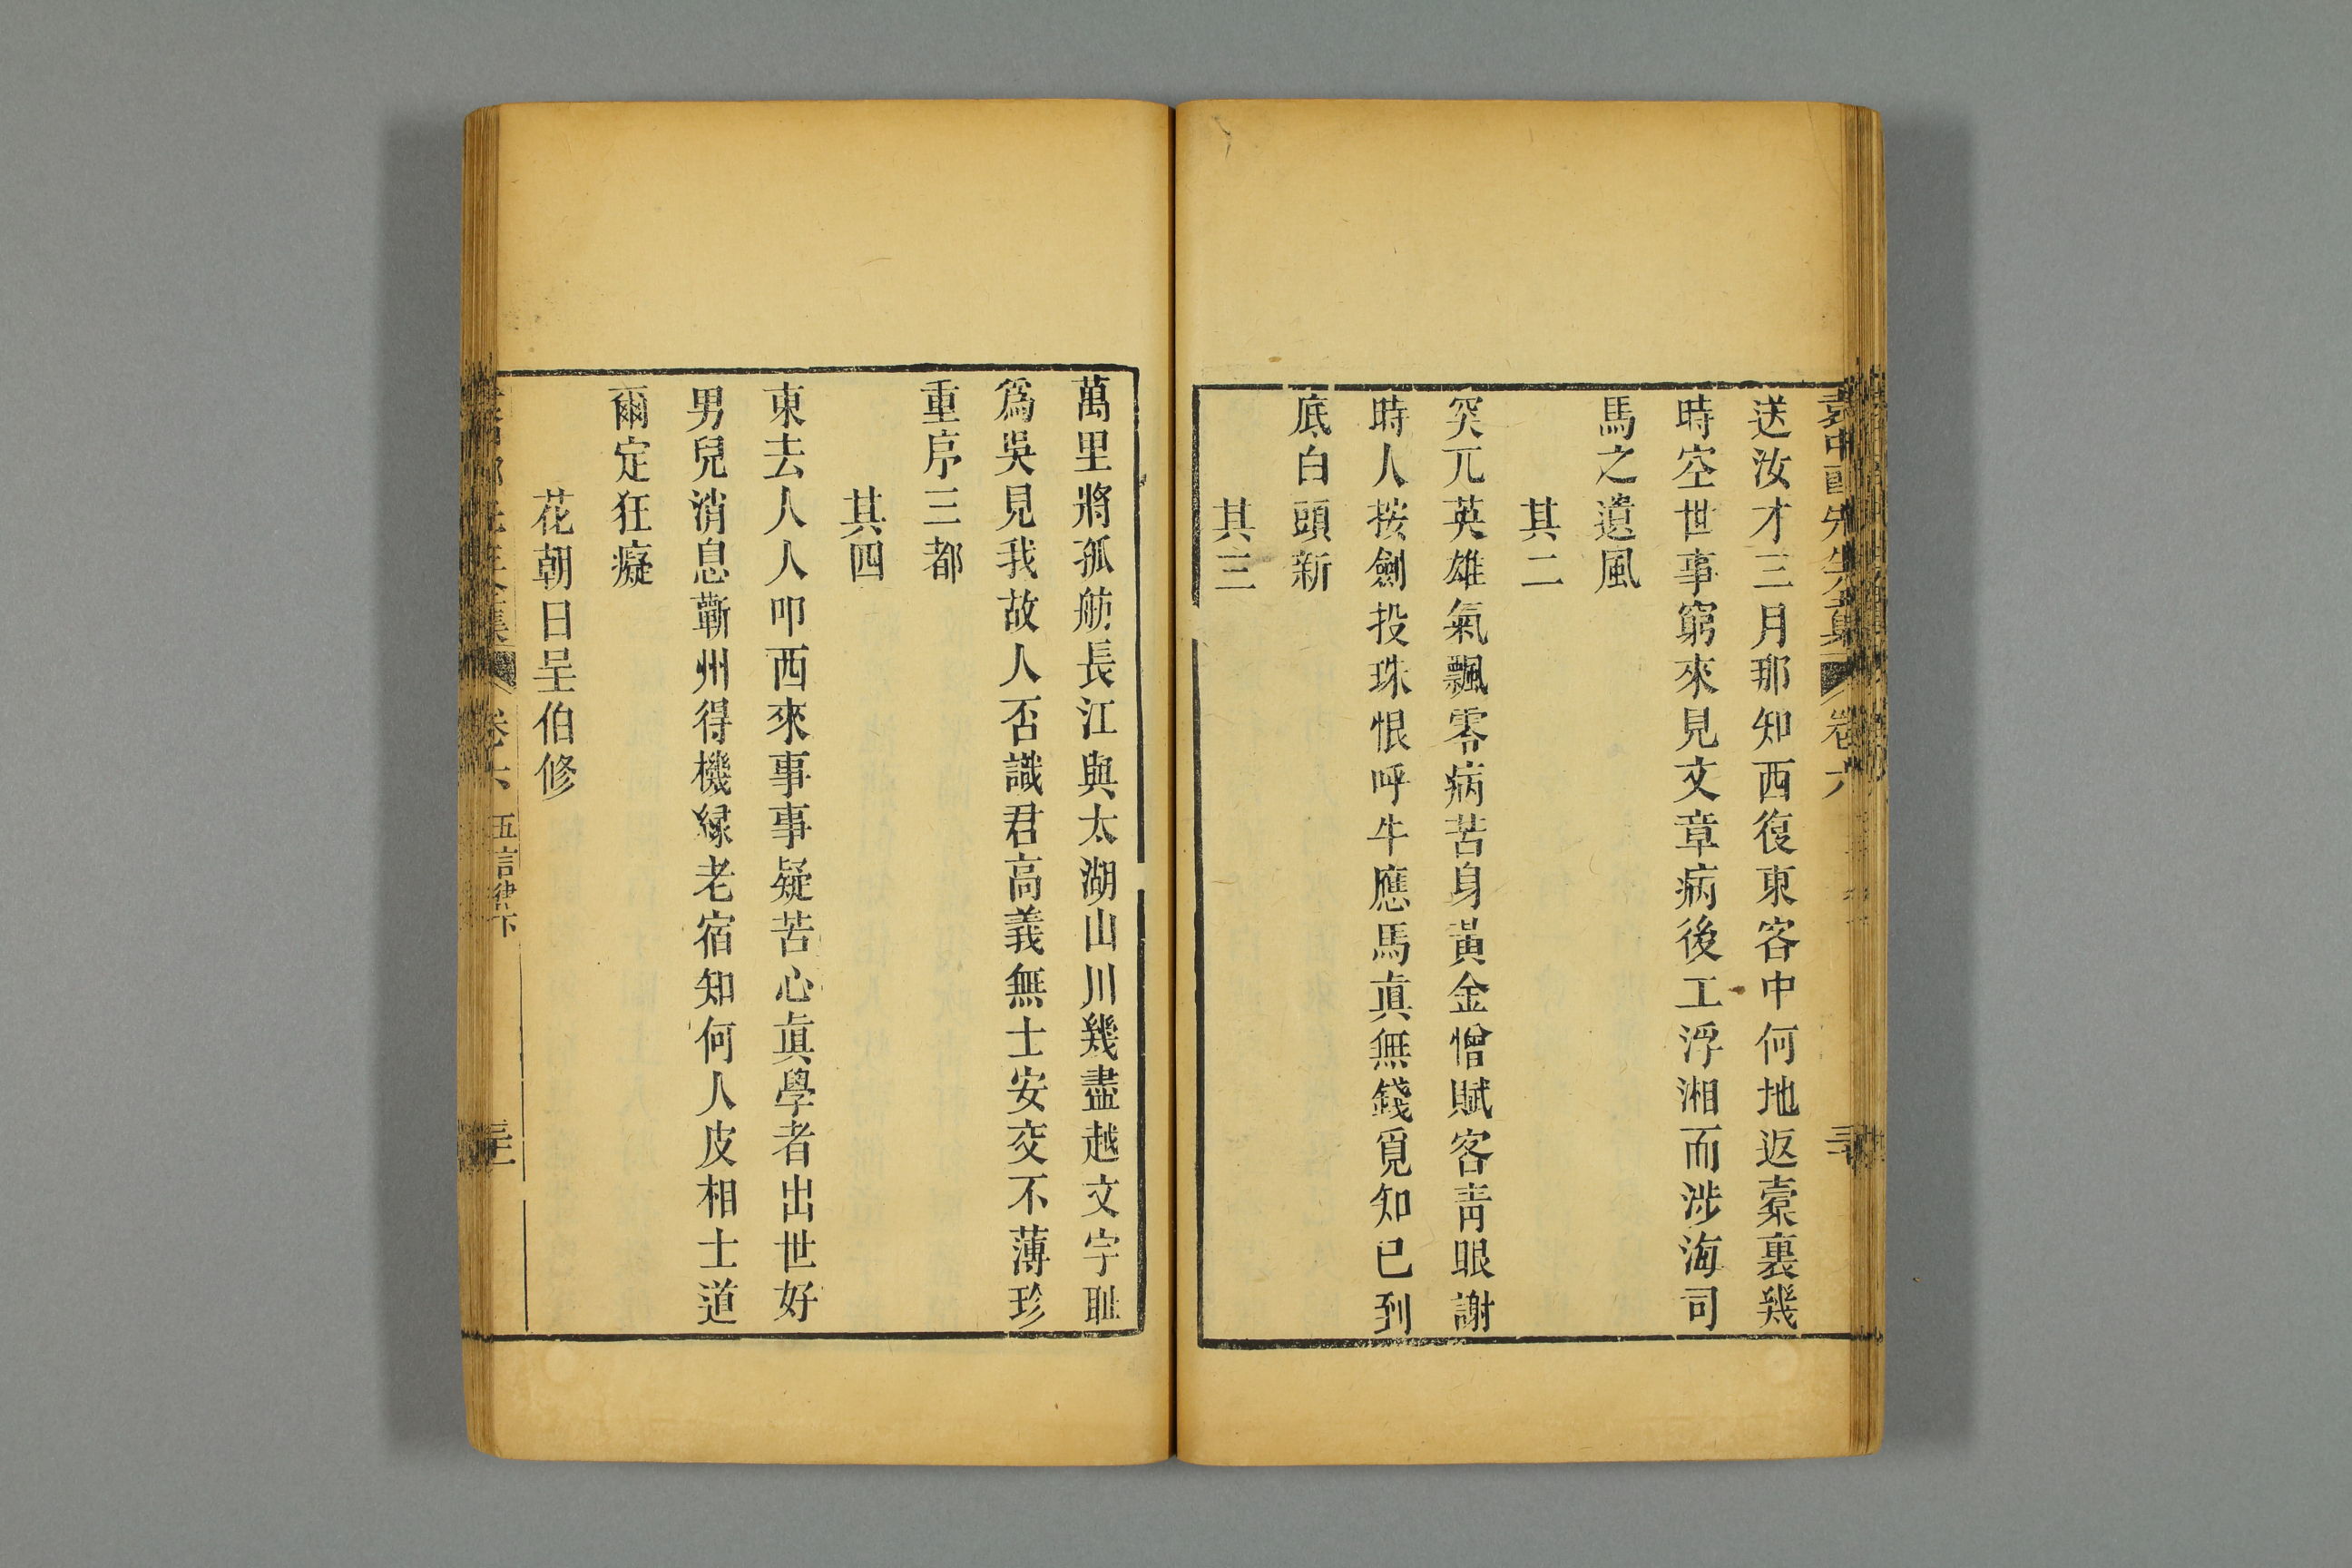 送汝才三月那知西復東客中何地返槖裏幾
時空世事窮來見文章病後工浮湘而渉海司
馬之遺風
其二
突兀英雄氣飄零病苦身黃金憎賦客靑眼謝
時人按劍投珠恨呼牛應馬眞無錢覓知已到
底白頭新
其三
萬里將孤舫長江與太湖山川幾盡越文字耻
爲吳見我故人否識君高義無士安交不薄珍
重序三都
其四
東去人人叩西來事事疑苦心眞學者出世好
男兒消息蘄州得機緣老宿知何人皮相士道
爾定狂癡
花朝日呈伯修
卷六 五言律下